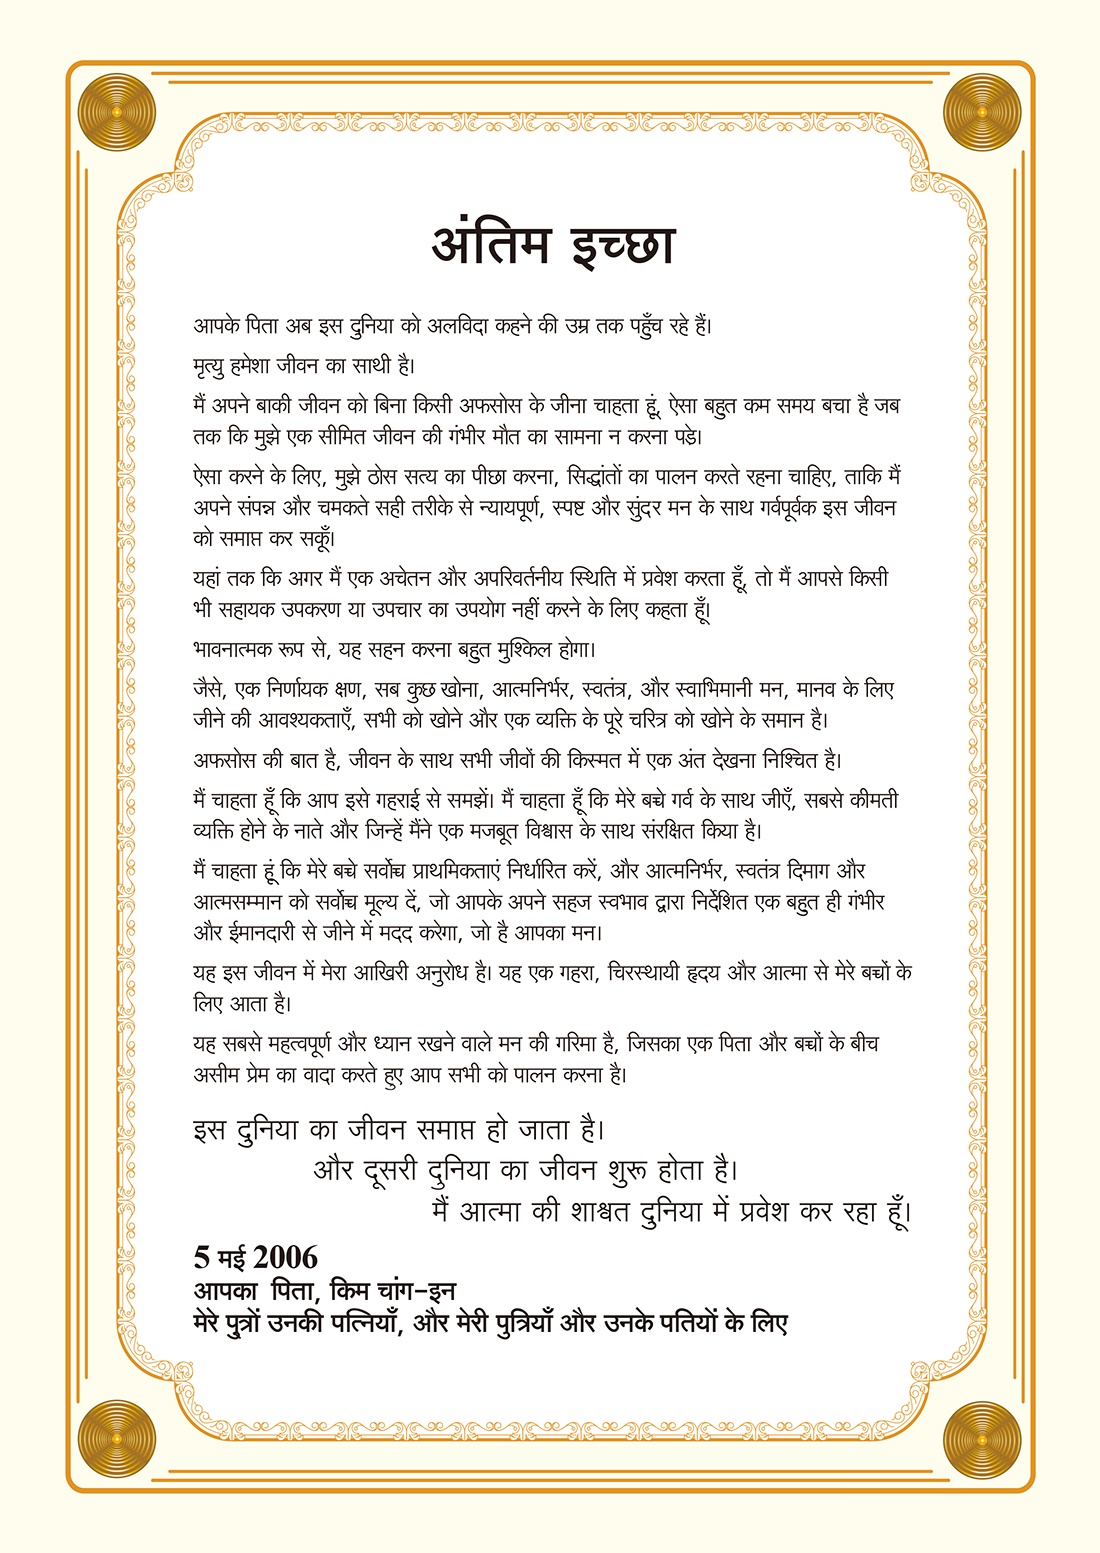 अंतिम इच्छा
आपके पिता अब इस दुनिया को अलविदा कहने की उम्र तक पहुँच रहे हैं।
मृत्यु हमेशा जीवन का साथी है।
मैं अपने बाकी जीवन को बिना किसी अफसोस के जीना चाहता हूं, ऐसा बहुत कम समय बचा है जब
तक कि मुझे एक सीमित जीवन की गंभीर मौत का सामना न करना पडे।
ऐसा करने के लिए, मुझे ठोस सत्य का पीछा करना, सिद्धांतों का पालन करते रहना चाहिए, ताकि मैं
अपने संपन्न और चमकते सही तरीके से न्यायपूर्ण, स्पष्ट और सुंदर मन के साथ गर्वपूर्वक इस जीवन
को समाप्त कर सकूँ।
यहां तक कि अगर मैं एक अचेतन और अपरिवर्तनीय स्थिति में प्रवेश करता हूँ, तो मैं आपसे किसी
भी सहायक उपकरण या उपचार का उपयोग नहीं करने के लिए कहता हूँ।
भावनात्मक रूप से, यह सहन करना बहुत मुश्किल होगा।
जैसे, एक निर्णायक क्षण, सब कुछ खोना, आत्मनिर्भर, स्वतंत्र, और स्वाभिमानी मन, मानव के लिए
जीने की आवश्यकताएँ, सभी को खोने और एक व्यक्ति के पूरे चरित्र को खोने के समान है।
अफसोस की बात है, जीवन के साथ सभी जीवों की किस्मत में एक अंत देखना निश्चित है।
मैं चाहता हूँ कि आप इसे गहराई से समझें। मैं चाहता हूँ कि मेरे बच्चे गर्व के साथ जीएँ, सबसे कीमती
व्यक्ति होने के नाते और जिन्हें मैंने एक मजबूत विश्वास के साथ संरक्षित किया है।
मैं चाहता हूं कि मेरे बच्चे सर्वोच्च प्राथमिकताएं निर्धारित करें, और आत्मनिर्भर, स्वतंत्र दिमाग और
आत्मसम्मान को सर्वोच्च मूल्य दें, जो आपके अपने सहज स्वभाव द्वारा निर्देशित एक बहुत ही गंभीर
और ईमानदारी से जीने में मदद करेगा, जो है आपका मन।
यह इस जीवन में मेरा आखिरी अनुरोध है। यह एक गहरा, चिरस्थायी हृदय और आत्मा से मेरे बच्चों के
लिए आता है।
यह सबसे महत्वपूर्ण और ध्यान रखने वाले मन की गरिमा है, जिसका एक पिता और बच्चों के बीच
असीम प्रेम का वादा करते हुए आप सभी को पालन करना है।
इस दुनिया का जीवन समाप्त हो जाता है।
और दूसरी दुनिया का जीवन शुरू होता है।
मैं आत्मा की शाश्वत दुनिया में प्रवेश कर रहा हूँ।
5 मई 2006
आपका पिता, किम चांग-इन
मेरे पुत्रों उनकी पत्नियाँ, और मेरी पुत्रियाँ और उनके पतियों के लिए